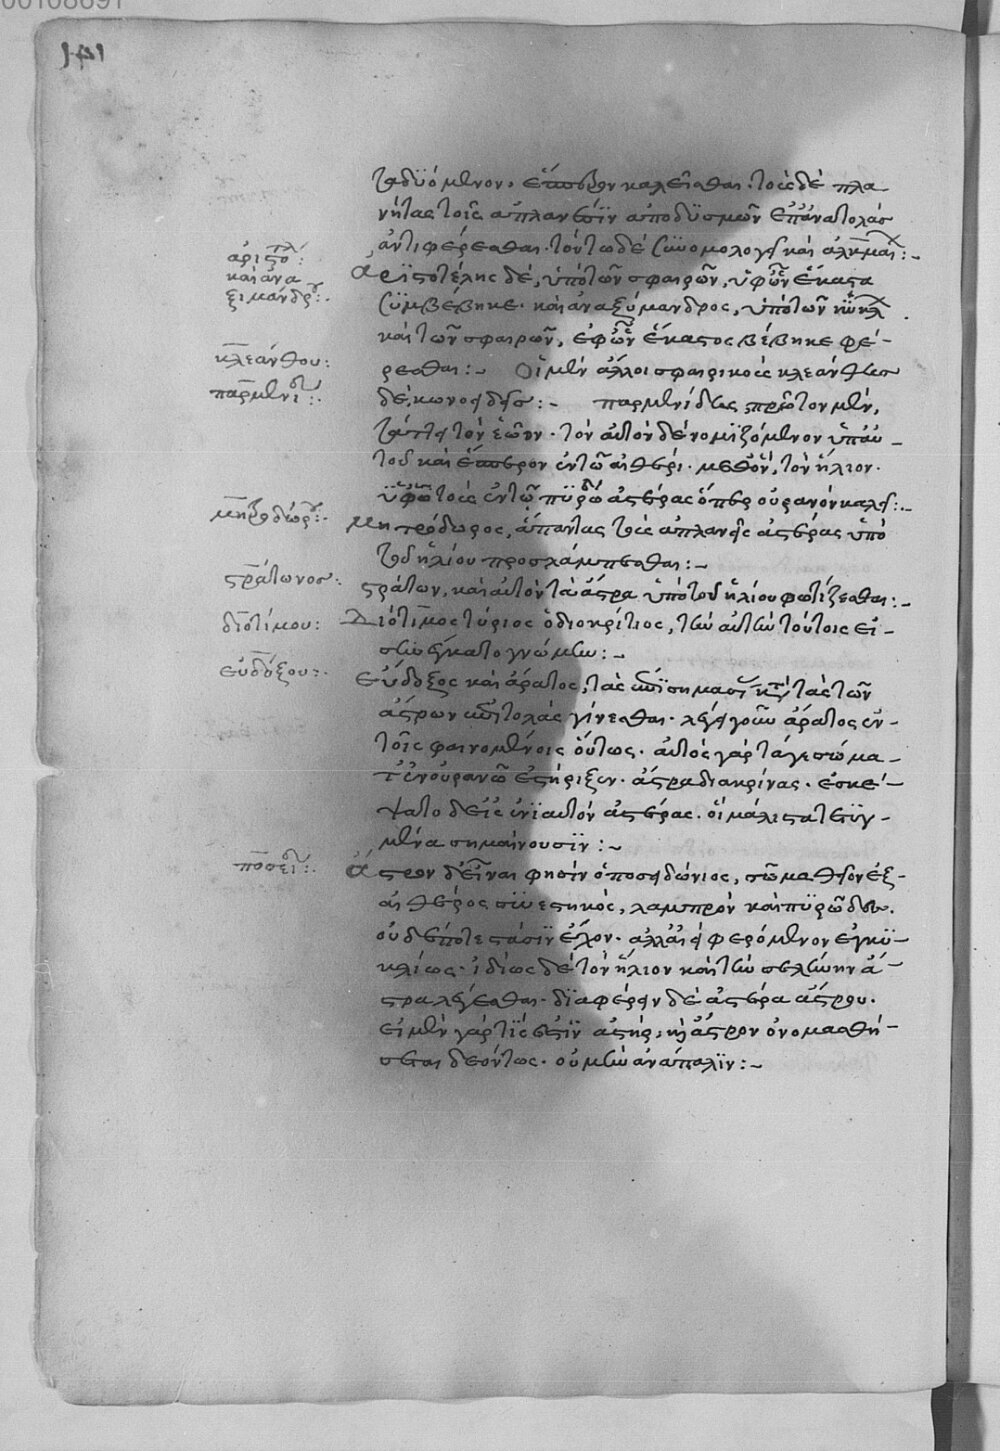 τοδϋόμενον, ἕσπερον καλεῖσθαι. τοὺς δὲ πλα
νήτας τοῖς ἀπλανέσϊν ἀπὸ δϋσμῶν ἐπ' ἀνατολὰς
ἀντιφέρεσθαι. τούτω δὲ συνομολογεῖ καὶ ἀλκμαί:-
ἀριστοτλ:
ἀρϊστοτέλης δέ, ὑπὸ τῶν σφαιρῶν, ὑφ' ὧν ἕκαστα
καὶ ἀνα
ξιμάνδρ:.
συμβέβηκε. καὶ ἀναξίμανδρος, ὑπὸ τῶν κύκλ
καὶ τῶν σφαιρῶν, ἐφ' ὧν ἕκαστος βέβηκε φέ-
κλεάνθου:
ρεσθαι:- οἱ μὲν ἄλλοι σφαιρικοὺς κλεάνθης
παρμενι:.
δὲ, κωνοειδεῖς:- παρμενίδης πρῶτον μὲν,
τάττει τὸν ἑῶον. τὸν αὐτὸν δὲ νομϊζόμενον ὑπ' αὐ-
τοῦ καὶ ἕσπερον ἐν τῶ αἰθέρι. μεθ' ὃν, τὸν ἥλιον.
ὑφ' ὧ τοὺς ἐν τῶ πϋρώδ ἀστέρας ὅπερ οὐρανὸν καλεῖ:-
μητροδώρ:.
μητρόδωρος, ἅπαντας τοὺς ἀπλανεῖς ἀστέρας ὑπὸ
τοῦ ἡλίου προσλάμπεσθαι:-
στράτωνος:
στράτων, καὶ αὐτὸν τὰ ἄστρα ὑπὸ τοῦ ἡλίου φωτίζεσθαι:-
διοτίμου:
Διότιμος τύριος ὁ διοκρίτιος, τὴν αὐτὴν τούτοις εἰ-
σηνέγκατο γνώμην:-
εὐδόξου:.
εὔδοξος καὶ ἄρατος, τὰς ἐπϊσημασί κτ τὰς τῶν
ἄστρων ἐπϊτολὰς γίνεσθαι. λέγει γοῦν ἄρατος ἐν
τοῖς φαινομένοις οὕτως. αὐτὸς γὰρ τάγε σώμα-
τ' ἐν οὐρανῶ ἐστήριξεν. ἄστρα διακρίνας. ἐσκέ-
ψατο δ' εἰς ἐνϊαυτὸν ἀστέρας. οἵ μάλιστα τετϋγ-
μένα σημαίνουσϊν:-
ποσει:.
ἄστρον δ' εἶναι φησὶν ὁ ποσειδώνιος, σῶμα θεῖον ἐξ
αἰθέρος συνεστηκὸς, λαμπρὸν καὶ πϋρῶδες.
οὐδέποτε στάσϊν ἔχον. ἀλλ' ἀεὶ φερόμενον ἐγκϋ-
κλίως. ἰδίως δὲ τὸν ἥλιον καὶ τὴν σελήνην ἄ-
στρα λέγεσθαι. δϊαφέρειν δὲ ἀστέρα ἄστρου.
εἰ μὲν γάρ τϊς ἐστϊν ἀστὴρ, κὴ ἄστρον ὀνομασθή-
σεται δεόντως. οὐ μὴν ἀνάπαλϊν:-